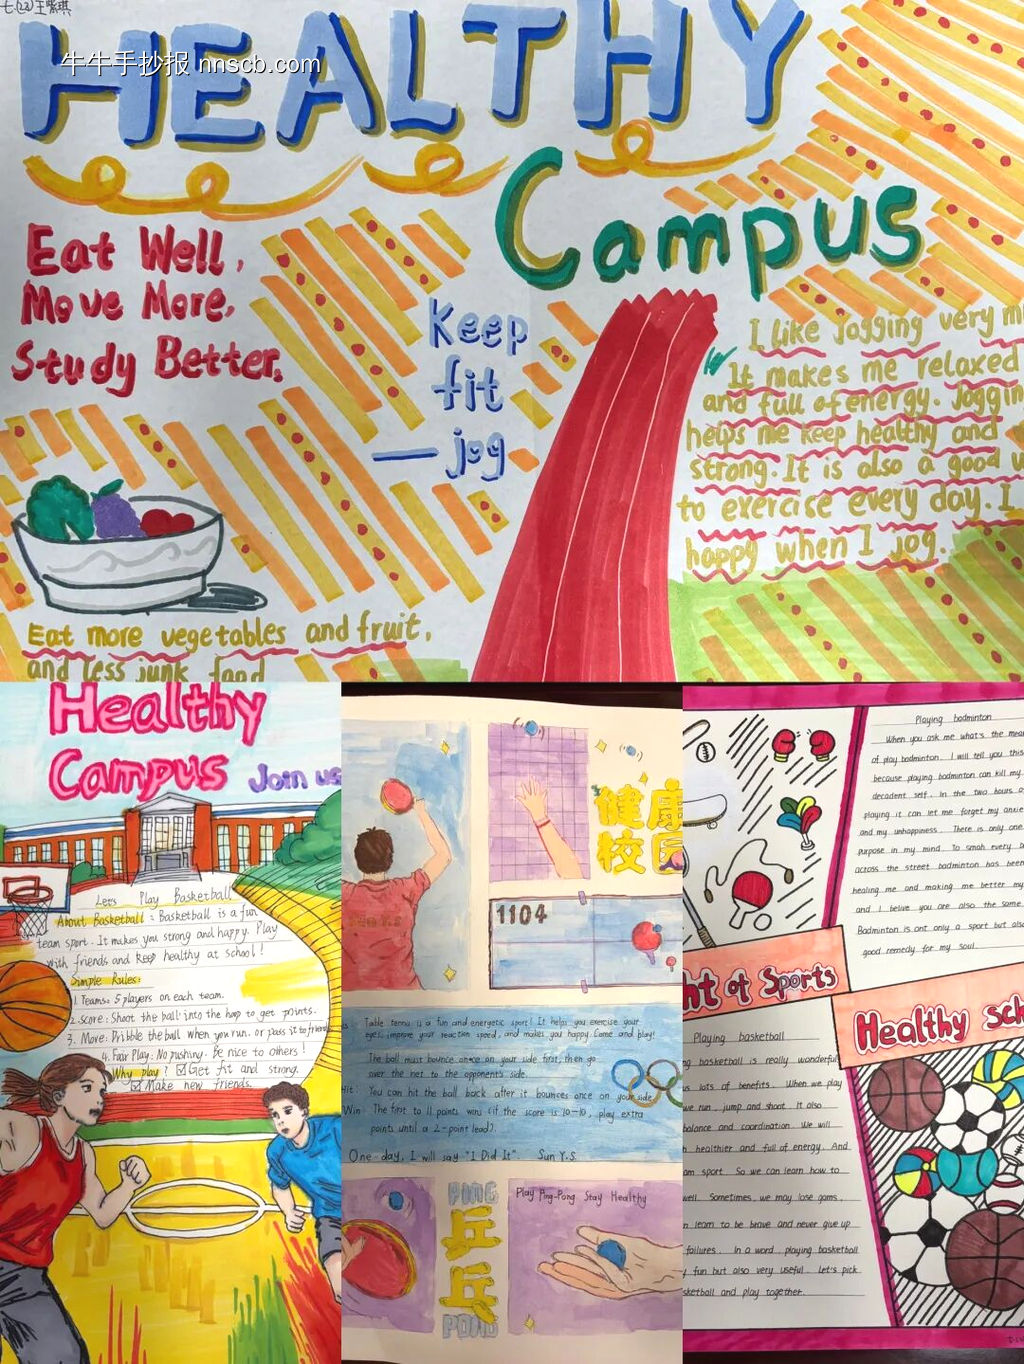 七.(23)王紫琪
牛牛手抄报 nnscb.com
HEALTHY
Campus
Eat Well,
Move More,
Study Better.
Keep
fit
— jog
I like jogging very
It makes me relaxed
and full of energy. Joggin
helps me keep healthy and
strong. It is also a good
to exercise every day. I
happy when I jog.
Eat more vegetables and fruit,
and less junk food
Healthy
Campus Join us
Let's Play Basketball
About Basketball: Basketball is a fun
team sport. It makes you strong and happy. Play
with friends and keep healthy at school!
Simple Rules:
1. Teams: 5 players on each team.
2. Score: Shoot the ball into the hoop to get points.
3. Move: Dribble the ball when you run. or pass it to friends
4. Fair Play: No pushing. be nice to others!
Why play? ☑ Get fit and strong.
☑ Make new friends.
健康
校园
1104
Table tennis is a fun and energetic sport! It helps you exercise your
eyes, improve your reaction speed, and makes you happy. Come and play!
The ball must bounce once on your side first, then go
over the net to the opponent's side.
Hit: You can hit the ball back after it bounces once on your side.
Win: The first to 11 points wins (if the score is 10-10, play extra
points until a 2-point lead).
One day, I will say "I Did It". Sun Y.S.
PING
乒
乓
PONG
Play Ping-Pong Stay Healthy
Playing badminton
When you ask me what's the mea
of play badminton. I will tell you this
because playing badminton can kill my
decadent self. In the two hours o
playing it can let me forget my anxie
and my unhappiness. There is only one
purpose in my mind. To smah every b
across the street badminton has been
healing me and making me better my
and I belive you are also the same.
Badminton is ont only a sport but also
good remedy for my soul.
ht of Sports
Healthy sch
Playing basketball
g basketball is really wonderful
s lots of benefits. When we play
we run, jump and shoot. It also
balance and coordination. We will
healthier and full of energy. And
am sport. So we can learn how to
well. Sometimes, we may lose gams,
n learn to be brave and never give up
failures. In a word, playing basketball
y fun but also very useful. Let's pick
sketball and play together.